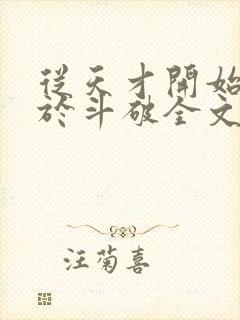 從天才開始
於斗破全文
汪菊喜